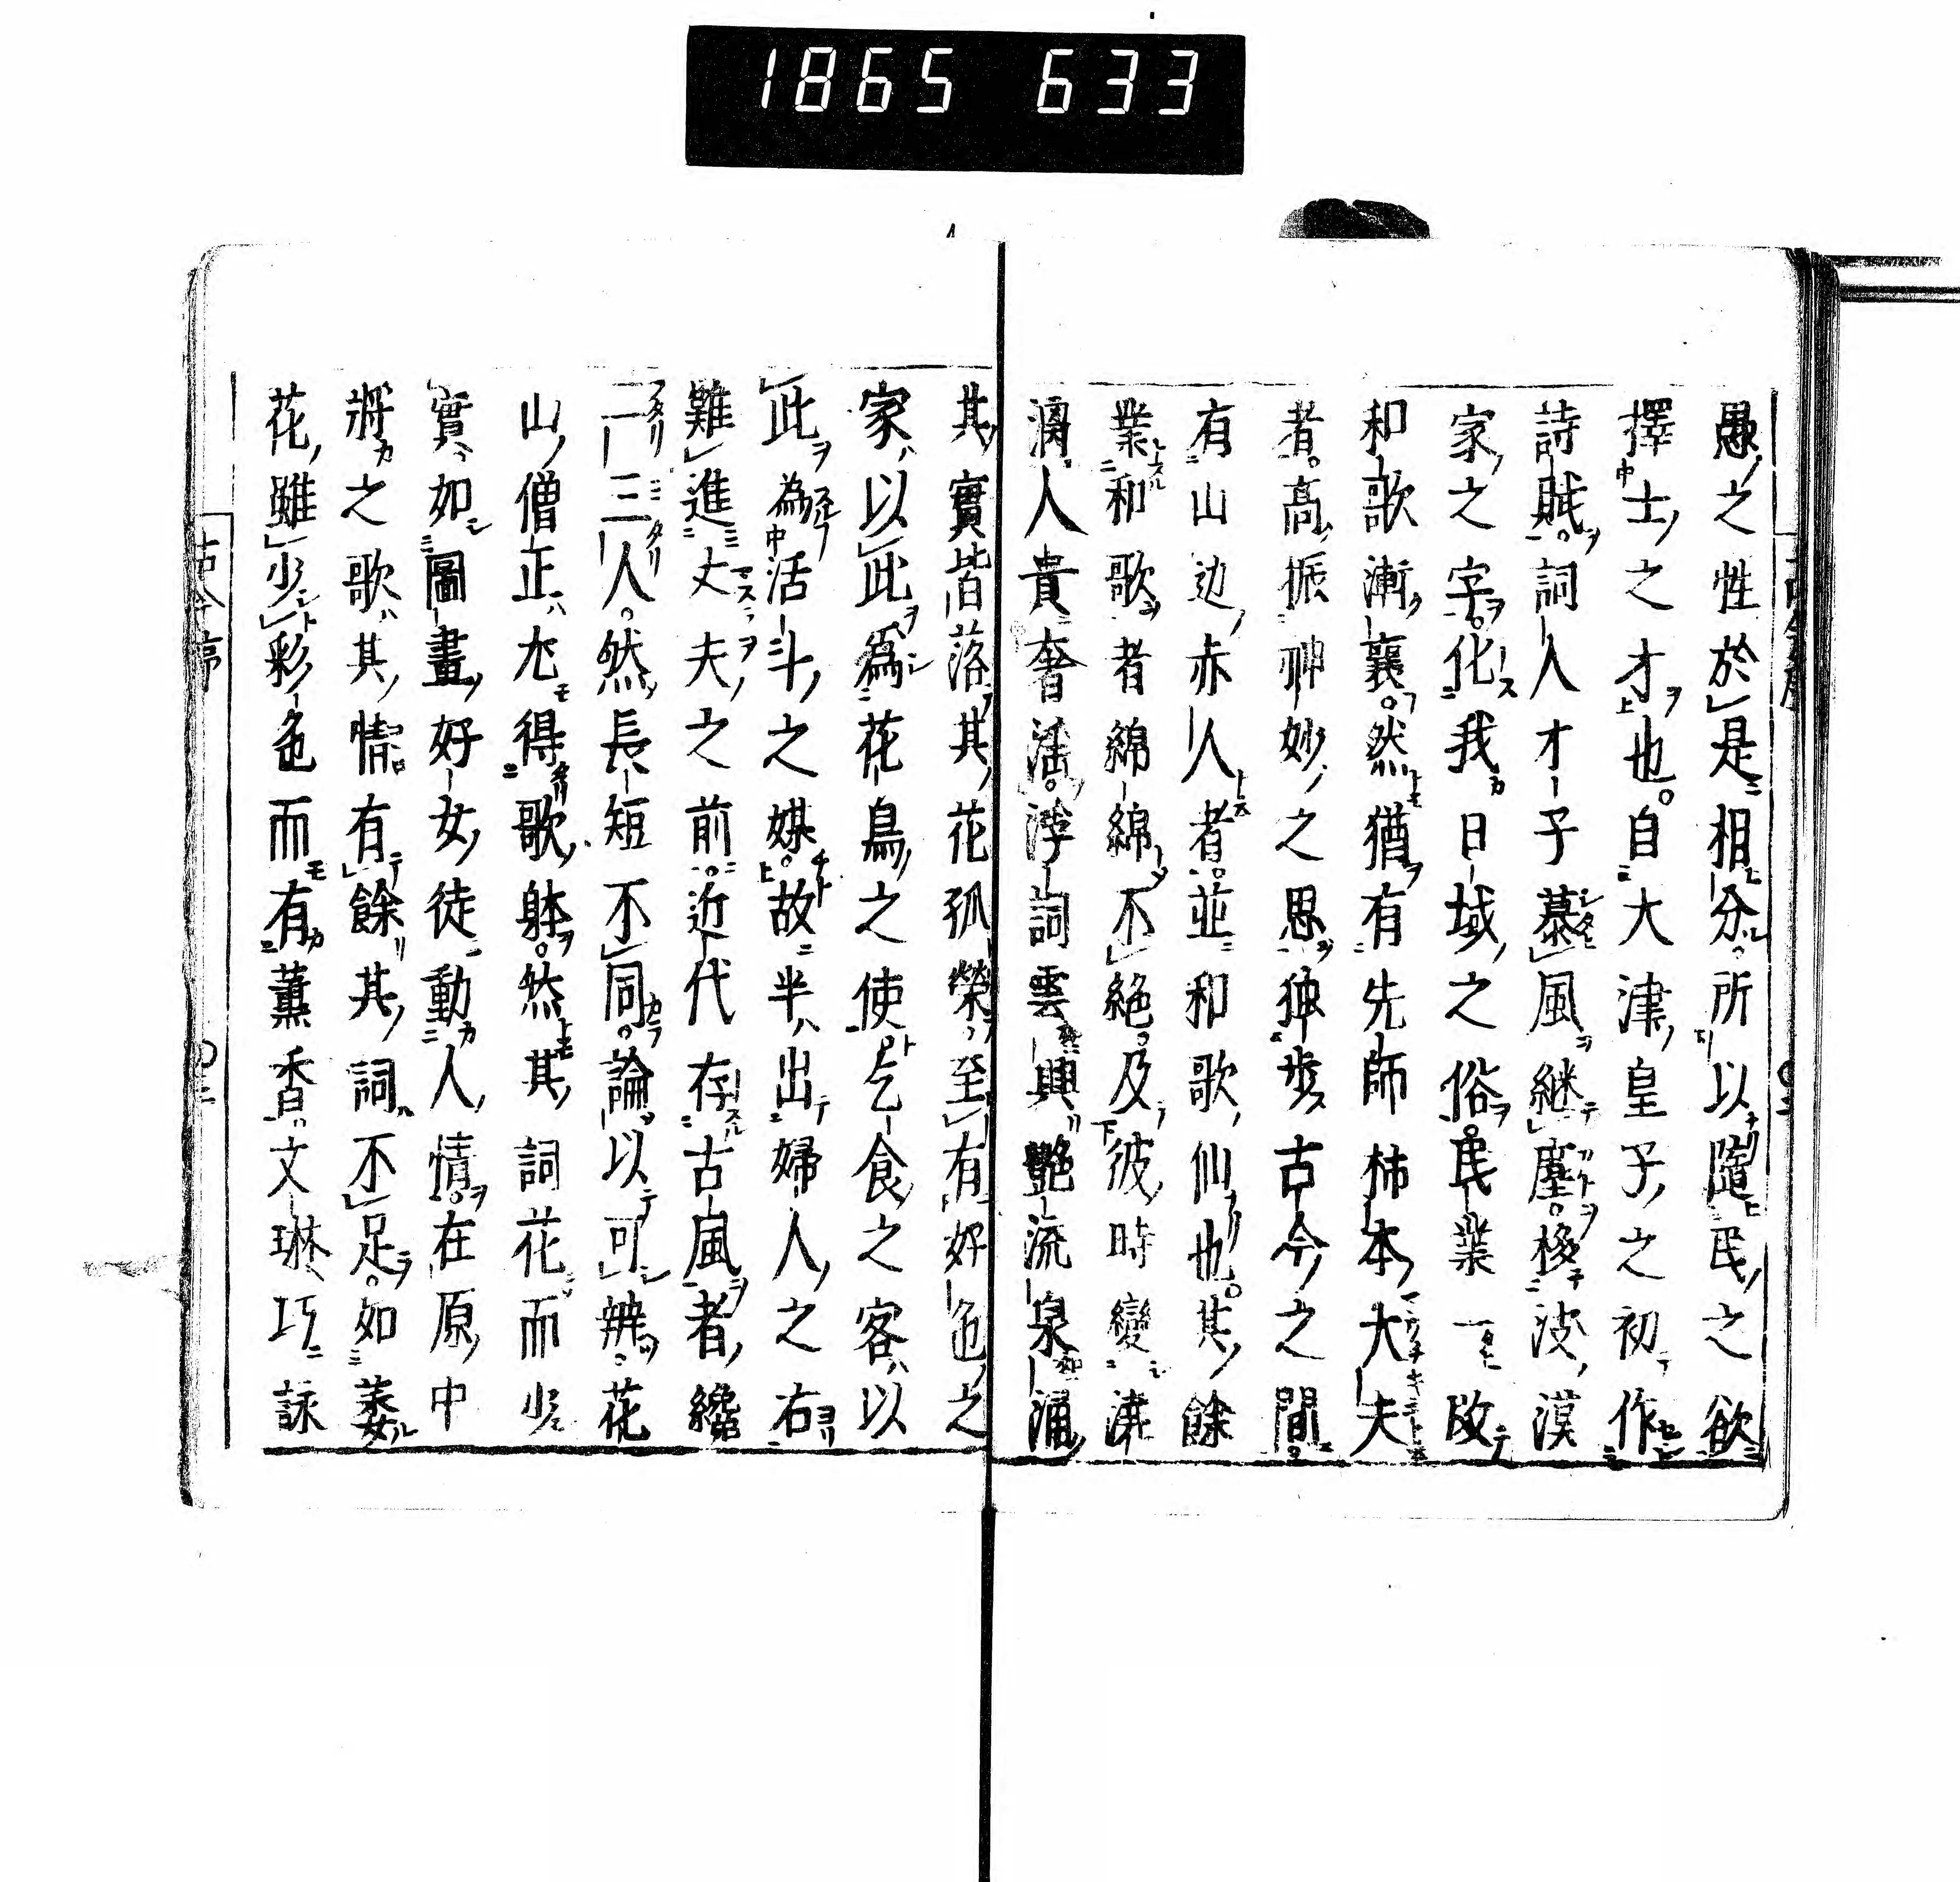 1865 633
愚之性於是相分所以隨民之欲
擇士之才也自大津皇子之初作
詩賦詞人才子慕風継塵移波漢
家之字化我日域之俗民業一改
和歌漸衰然猶有先師柿本大夫
者高振神妙之思独歩古今之間
有山辺赤人者並和歌仙也其餘
業和歌者綿綿不絶及彼時變澆
漓人貴奢淫浮詞雲興艶流泉涌
其實皆落其花孤榮至有好色之
家以此爲花鳥之使乞食之客以
此為活斗之媒故半出婦人之右
難進丈夫之前近代存古風者纔
二三人然長短不同論以可辨花
山僧正尤得歌躰然其詞花而少
實如圖畫好女徒動人情在原中
将之歌其情有餘其詞不足如萎
花雖少彩色而有薫香文琳巧詠